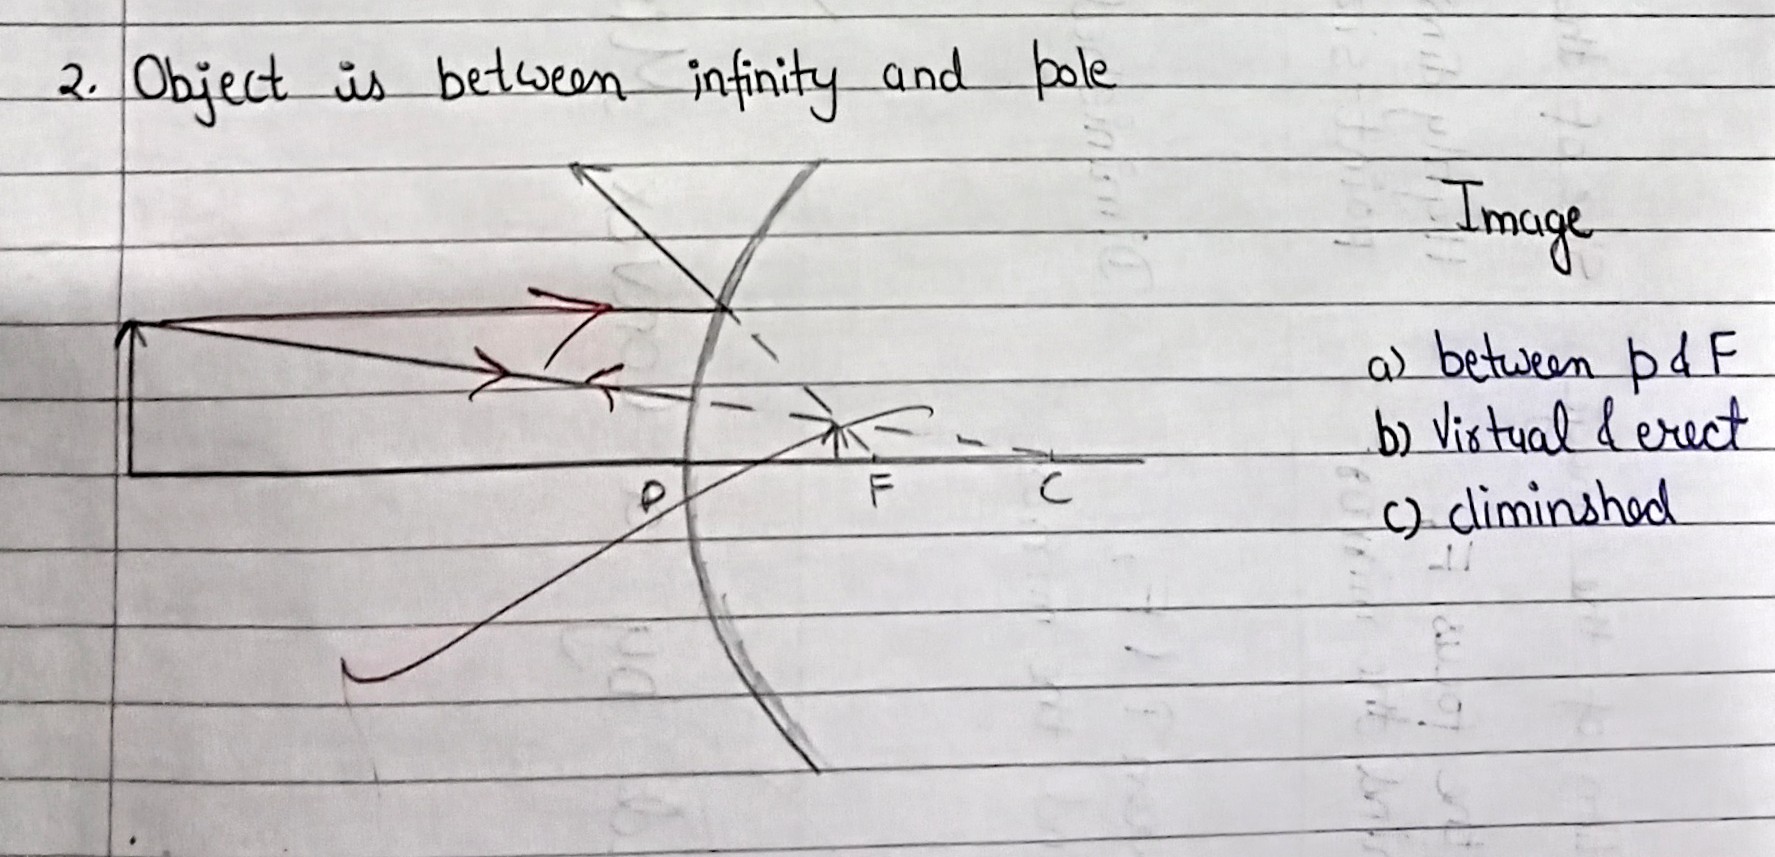 2. Object is between infinity and pole
Image
a) between p & F
b) Virtual & erect
c) diminshed
P F C